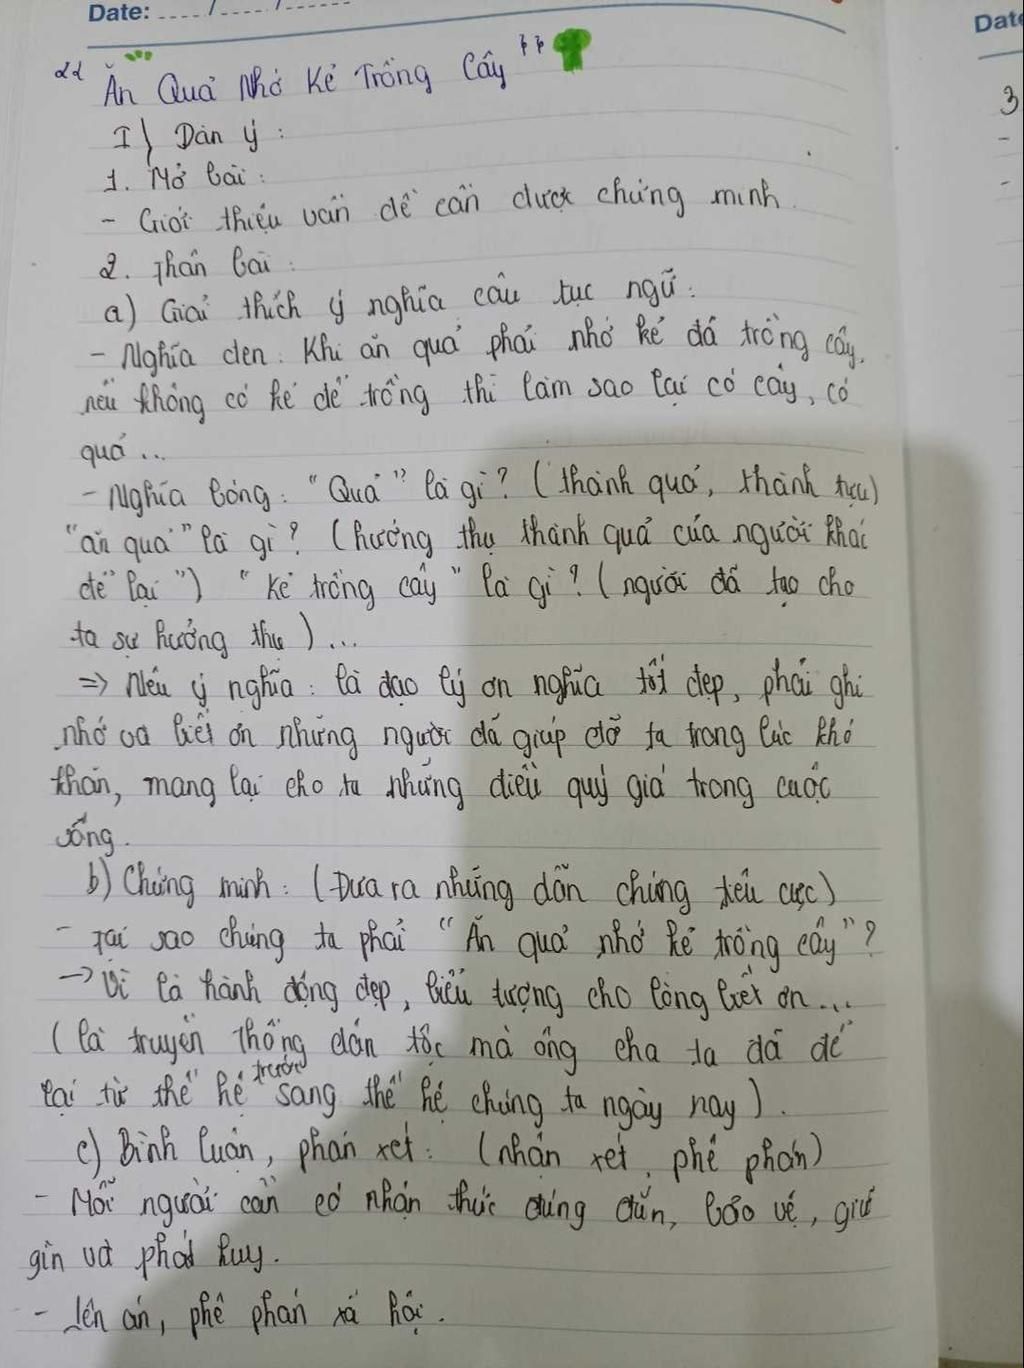 Date: ..../..../....
Date
"Ăn Quả Nhớ Kẻ Trồng Cây"
I) Dàn ý :
1. Mở bài :
- Giới thiệu vấn đề cần được chứng minh.
2. Thân bài :
a) Giải thích ý nghĩa câu tục ngữ :
- Nghĩa đen : Khi ăn quả phải nhớ kẻ đã trồng cây,
nếu không có kẻ để trồng thì làm sao lại có cây, có
quả...
- Nghĩa bóng : "Quả" là gì? (thành quả, thành tựu)
"ăn quả" là gì? (hưởng thụ thành quả của người khác
để lại") "Kẻ trồng cây" là gì? (người đã tạo cho
ta sự hưởng thụ)...
=> Nêu ý nghĩa : là đạo lý ơn nghĩa tốt đẹp, phải ghi
nhớ và biết ơn những người đã giúp đỡ ta trong lúc khó
khăn, mang lại cho ta những điều quý giá trong cuộc
sống.
b) Chứng minh : (Đưa ra những dẫn chứng tiêu cực)
- Tại sao chúng ta phải "Ăn quả nhớ kẻ trồng cây"?
-> Vì là hành động đẹp, biểu tượng cho lòng biết ơn...
(là truyền thống dân tộc mà ông cha ta đã để
lại từ thế hệ trước sang thế hệ chúng ta ngày nay).
c) Bình luận, phán xét : (nhận xét, phê phán)
- Mỗi người cần có nhận thức đúng đắn, bảo vệ, giữ
gìn và phát huy.
- Lên án, phê phán xã hội.
3
-
-